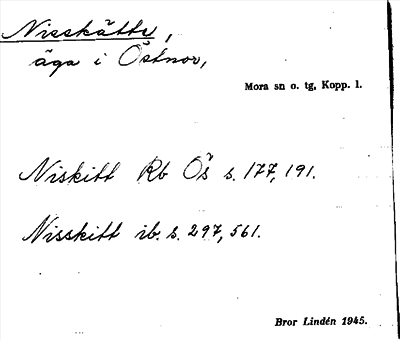 Nisskätte,
äga i Östnor,
Mora sn o. tg, Kopp. l.
Niskitt Rb Ös s. 177, 191.
Nisskitt ib. s. 297, 561.
Bror Lindén 1945.